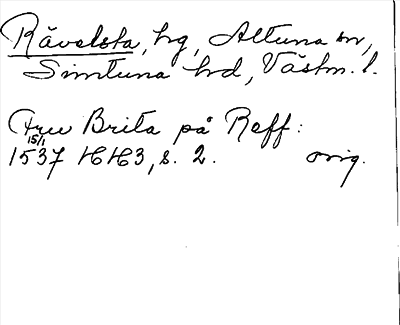 Rävelsta, hg, Altuna sn,
Simtuna hd, Västm. l.
Fru Brita på Reff:
15/1
1537 HH3, s. 2. orig.